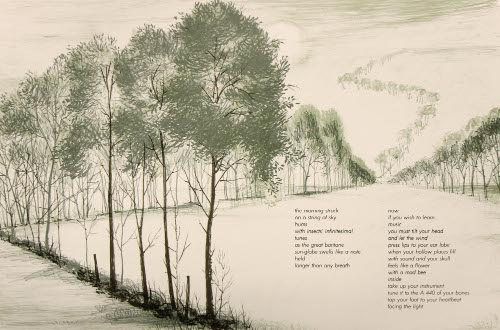 the morning struck
on a string of sky
hums
with insects' infinitesimal
tunes
as the great baritone
sun-globe swells like a note
held
longer than any breath
now
if you wish to learn
music
you must tilt your head
and let the wind
press lips to your ear lobe
when your hollow places fill
with sound and your skull
feels like a flower
with a mad bee
inside
take up your instrument
tune it to the A 440 of your bones
tap your foot to your heartbeat
facing the light